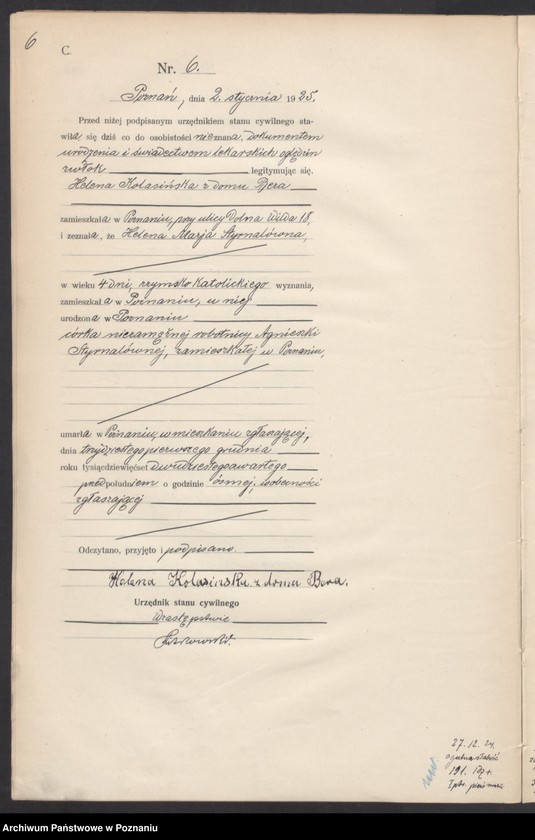 6
C.
Nr. 6.
Poznań, dnia 2. stycznia 1925.
Przed niżej podpisanym urzędnikiem stanu cywilnego sta-
wiła się dziś co do osobistości nieznana, dokumentem
urodzenia i świadectwem lekarskich oględzin
zwłok legitymując się.
Helena Kolasińska z domu Bera
zamieszkała w Poznaniu, przy ulicy Dolna Wilda 18,
i zeznała, że Helena Marja Styrnalówna,
w wieku 4 dni, rzymsko katolickiego wyznania,
zamieszkała w Poznaniu, u niej
urodzona w Poznaniu
córka niezamężnej robotnicy Agnieszki
Styrnalównej, zamieszkałej w Poznaniu,
umarła w Poznaniu, w mieszkaniu zgłaszającej,
dnia trzydziestego pierwszego grudnia
roku tysiącdziewięćset dwudziestego czwartego
przed południem o godzinie ósmej, w obecności
zgłaszającej
Odczytano, przyjęto i podpisano.
Helena Kolasińska z domu Bera.
Urzędnik stanu cywilnego
W zastępstwie
27. 12. 24.
ogólna słabość
191.
Archiwum Państwowe w Poznaniu